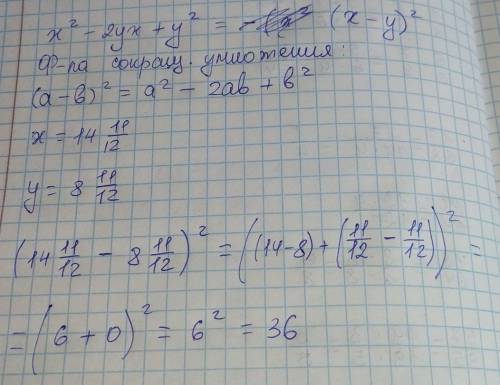 x² - 2yx + y² = (x - y)²
Ф-ла сокращ. умножения:
(a-b)² = a² - 2ab + b²
x = 14 11/12
y = 8 11/12
(14 11/12 - 8 11/12)² = ((14-8) + (11/12 - 11/12))² =
= (6 + 0)² = 6² = 36